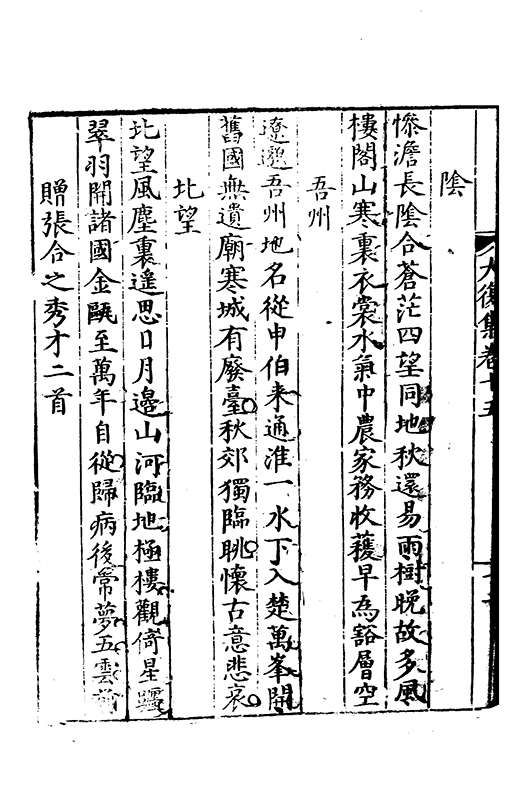 大復集卷十五
陰
慘澹長陰合蒼茫四望同地秋還易雨樹晚故多風
樓閣山寒裏衣裳水氣中農家務收穫早為豁層空
吾州
遼邈吾州地名從申伯来通淮一水下入楚萬峯開
舊國無遺廟寒城有廢臺秋郊獨臨眺懷古意悲哀
北望
北望風塵裏遙思日月邊山河臨地極樓觀倚星躔
翠羽開諸國金甌至萬年自從歸病後常夢五雲前
贈張合之秀才二首